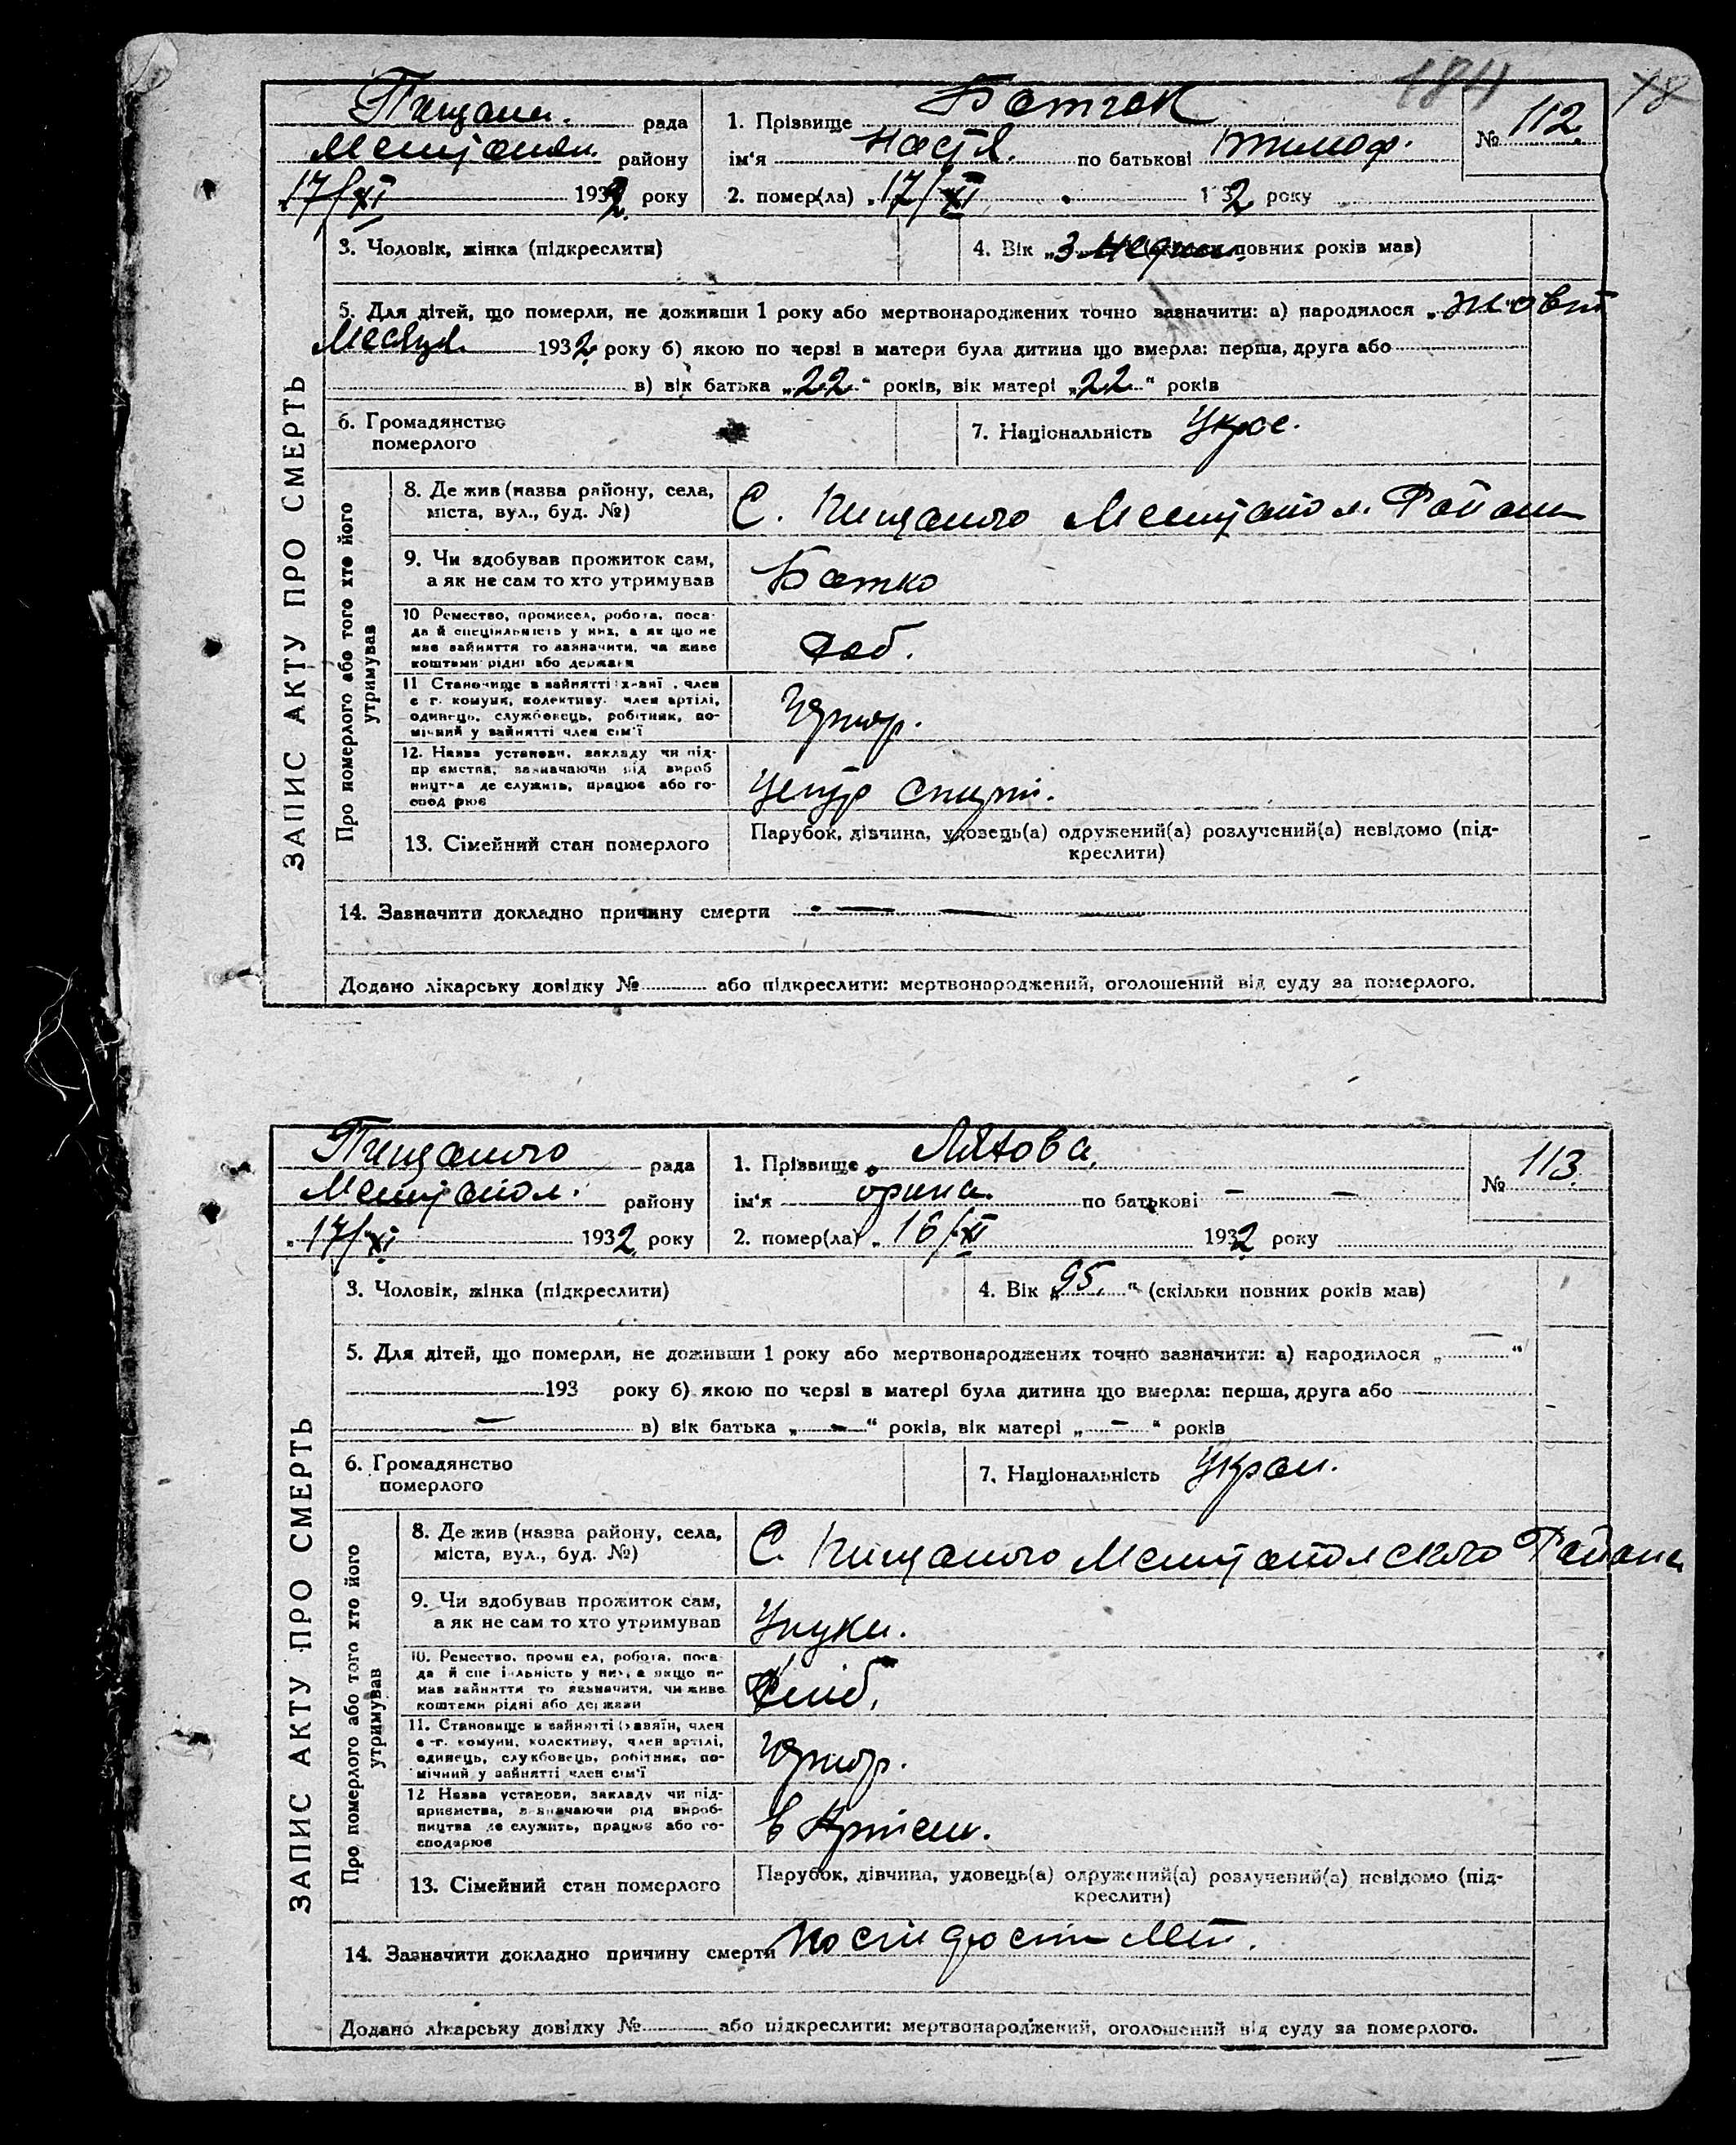 184 18
Пищан. рада 1. Прізвище Батчак № 112.
Мелитопол. району ім'я Настя. по батькові Тимоф.
17/XI 1932 року 2. помер(ла) „17/XI 1932 року
3. Чоловік, жінка (підкреслити) 4. Вік „3 повних років мав)
5. Для дітей, що померли, не доживши 1 року або мертвонароджених точно зазначити: а) народилося „
Месяця 1932 року б) якою по черзі в матери була дитина що вмерла: перша, друга або
в) вік батька „22“ років, вік матері „22“ років
6. Громадянство
померлого
7. Національність Укра.
ЗАПИС АКТУ ПРО СМЕРТЬ
Про померлого або того хто його
утримував
8. Де жив (назва району, села,
міста, вул., буд. №)
С. Пищаного Мелитопол. Району
9. Чи здобував прожиток сам,
а як не сам то хто утримував
Батко
10 Ремество, промисел, робота, поса-
да й спеціяльність у них, а як що не
мав зайняття то зазначити, чи живе
коштами рідні або держави
Роб.
11 Становище в зайнятті член
с г. комуни, колективу, член артілі,
одинець, службовець, робітник, по-
мічний у зайнятті член сім'ї
12. Назва установи, закладу чи під-
приємства, зазначаючи рід вироб
ництва де служить, працює або го-
сподарює
Центр Спирт.
13. Сімейний стан померлого
Парубок, дівчина, удовець(а) одружений(а) розлучений(а) невідомо (під-
креслити)
14. Зазначити докладно причину смерти
Додано лікарську довідку № або підкреслити: мертвонароджений, оголошений від суду за померлого.
Пищаного рада 1. Прізвище Ляхова. № 113.
Мелитопол. району ім'я Орина. по батькові — —
„17/XI 1932 року 2. помер(ла) „16/XI 1932 року
3. Чоловік, жінка (підкреслити) 4. Вік „95“ (скільки повних років мав)
5. Для дітей, що померли, не доживши 1 року або мертвонароджених точно зазначити: а) народилося „—“
193 року б) якою по черзі в матері була дитина що вмерла: перша, друга або
— в) вік батька „—“ років, вік матері „—“ років
6. Громадянство
померлого
7. Національність Украи.
ЗАПИС АКТУ ПРО СМЕРТЬ
Про померлого або того хто його
утримував
8. Де жив (назва району, села,
міста, вул., буд. №)
С. Пищаного Мелитополского Району
9. Чи здобував прожиток сам,
а як не сам то хто утримував
Унуки.
10. Ремество, промисел, робота, поса-
да й спеціяльність у них, а якщо не
мав зайняття то зазначити, чи живе
коштами рідні або держави
11. Становище в зайнятті (хазяїн, член
с-г. комуни, колективу, член артілі,
одинець, службовець, робітник, по-
мічний у зайнятті член сім'ї
12 Назва установи, закладу чи під-
приємства, зазначаючи рід вироб-
ництва де служить, працює або го-
сподарює
в Артели.
13. Сімейний стан померлого
Парубок, дівчина, удовець(а) одружений(а) розлучений(а) невідомо (під-
креслити)
14. Зазначити докладно причину смерти По старости лет.
Додано лікарську довідку № або підкреслити: мертвонароджений, оголошений від суду за померлого.